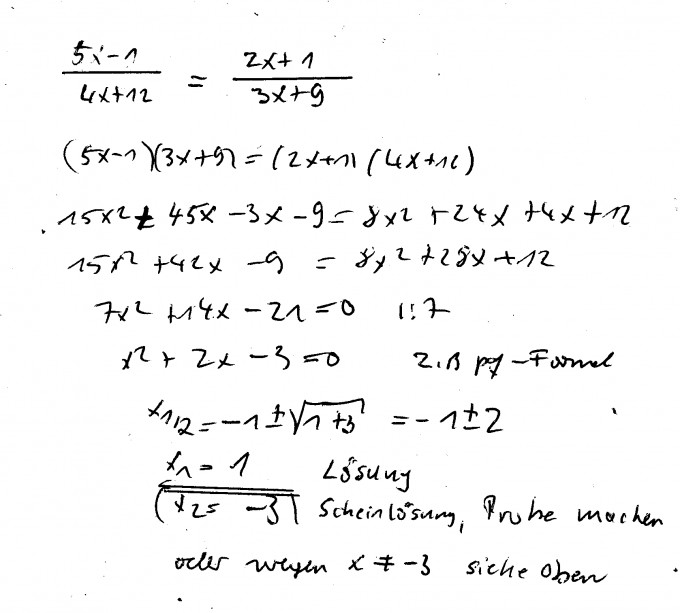 5x-1 / 4x+12 = 2x+1 / 3x+9
(5x-1)(3x+9) = (2x+1)(4x+12)
15x² + 45x - 3x - 9 = 8x² + 24x + 4x + 12
15x² + 42x - 9 = 8x² + 28x + 12
7x² + 14x - 21 = 0 |:7
x² + 2x - 3 = 0 z.B pq-Formel
x1/2 = -1 ± √1+3 = -1 ± 2
x1 = 1 Lösung
(x2 = -3) Scheinlösung, Probe machen
oder wegen x ≠ -3 siehe oben